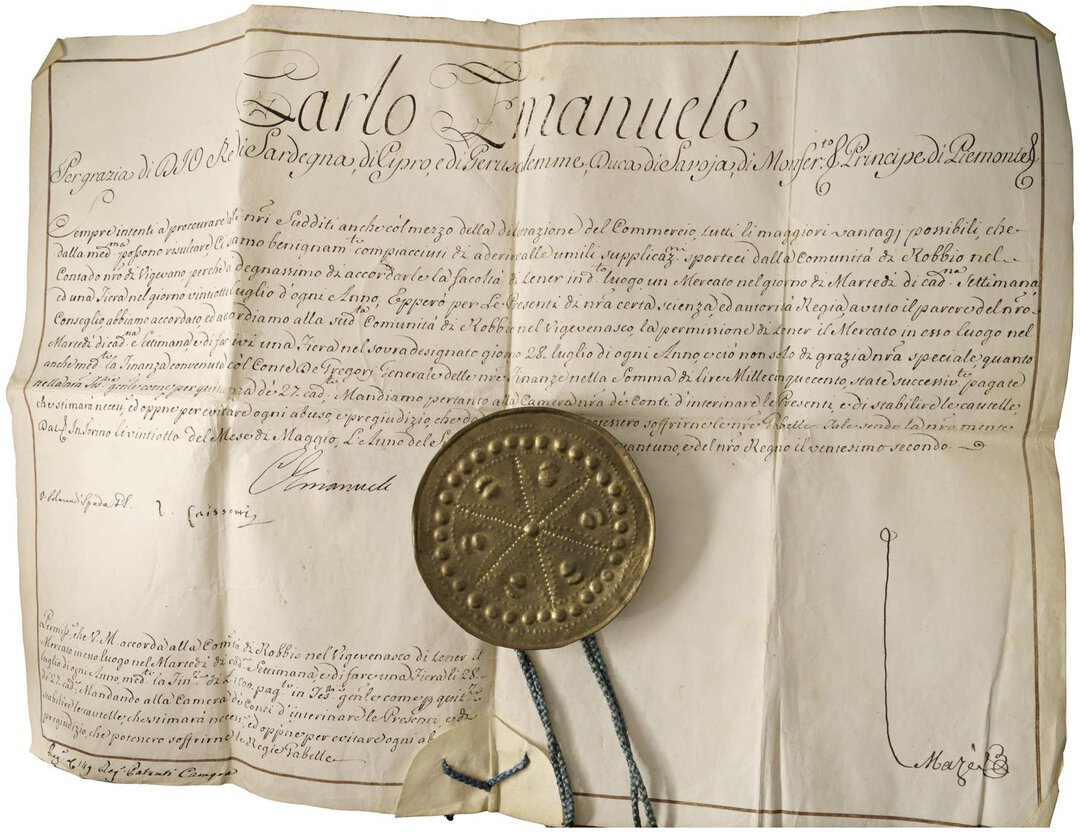 Carlo Emanuele
Per grazia di DIO Re di Sardegna, di Cipro, e di Gerusalemme, Duca di Savoja, di Monfer.to &. Principe di Piemonte &.
Sempre intenti a proccurare alli nr̃i Sudditi anche col mezzo della dilatazione del Commercio, tutti li maggiori vantagj possibili, che
dalla med.ma possono risultare, Ci siamo benignam.te compiacciuti di aderire alle umili supplicaz.ni sporteci dalla Comunità di Robbio nel
Contado nr̃o di Vigevano, perchè degnassimo di accordarle la facoltà di tener in d.to luogo un Mercato nel giorno di Martedì di cad.na Settimana,
ed una Fiera nel giorno vintiotto luglio d'ogni Anno, Epperò per Le Presenti di nr̃a certa scienza, ed autorità Regia, avuto il parere del nr̃o
Conseglio abbiamo accordato, ed accordiamo alla sud.ta Comunità di Robbio nel Vigevenasco la permissione di tener il Mercato in esso luogo nel
Martedì di cad.na Settimana, e di far ivi una Fiera nel sovra designato giorno 28. luglio di ogni Anno, e ciò non solo di grazia nr̃a speciale, quanto
anche med.te la Finanza convenuta col Conte De Gregorj Generale delle nr̃e Finanze nella Somma di lire Mille cinquecento state successiv.te pagate
nella nr̃a Tes.ria gñle come per quitanza de' 27. cad.te Mandiamo pertanto alla Camera nr̃a de' Conti d'interinare le Presenti, e di stabilire le cautelle,
che stimarà necess.e ed oppne per evitare ogni abuso, e pregiudizio, che potenero soffrirne le nr̃e Gabelle. Tale sendo la nr̃a mente.
Dat. In Torino li vintiotto del Mese di Maggio, L'Anno del Sig. quantuno, e del nr̃o Regno il ventesimo secondo.
C Emanuele
Caissotti
Permiss.e, che V. M. accorda alla Com.tà di Robbio nel Vigevenasco di tener il
Mercato in esso luogo nel Martedì di cad.na Settimana, e di fare una Fiera li 28.
luglio di ogni Anno, med.te la Fin.za di L. 1500. pag.te in Tes.ria gen.le come p quit.za
de' 27. cad.te Mandando alla Camera de' Conti d'interinare le Presenti, e di
stabilire le cautelle, che stimarà necess.e ed oppne per evitare ogni ab
pregiudizio, che potenero soffrirne le Regie Gabelle
Reg. 149 Reg.° Patenti
Mazé